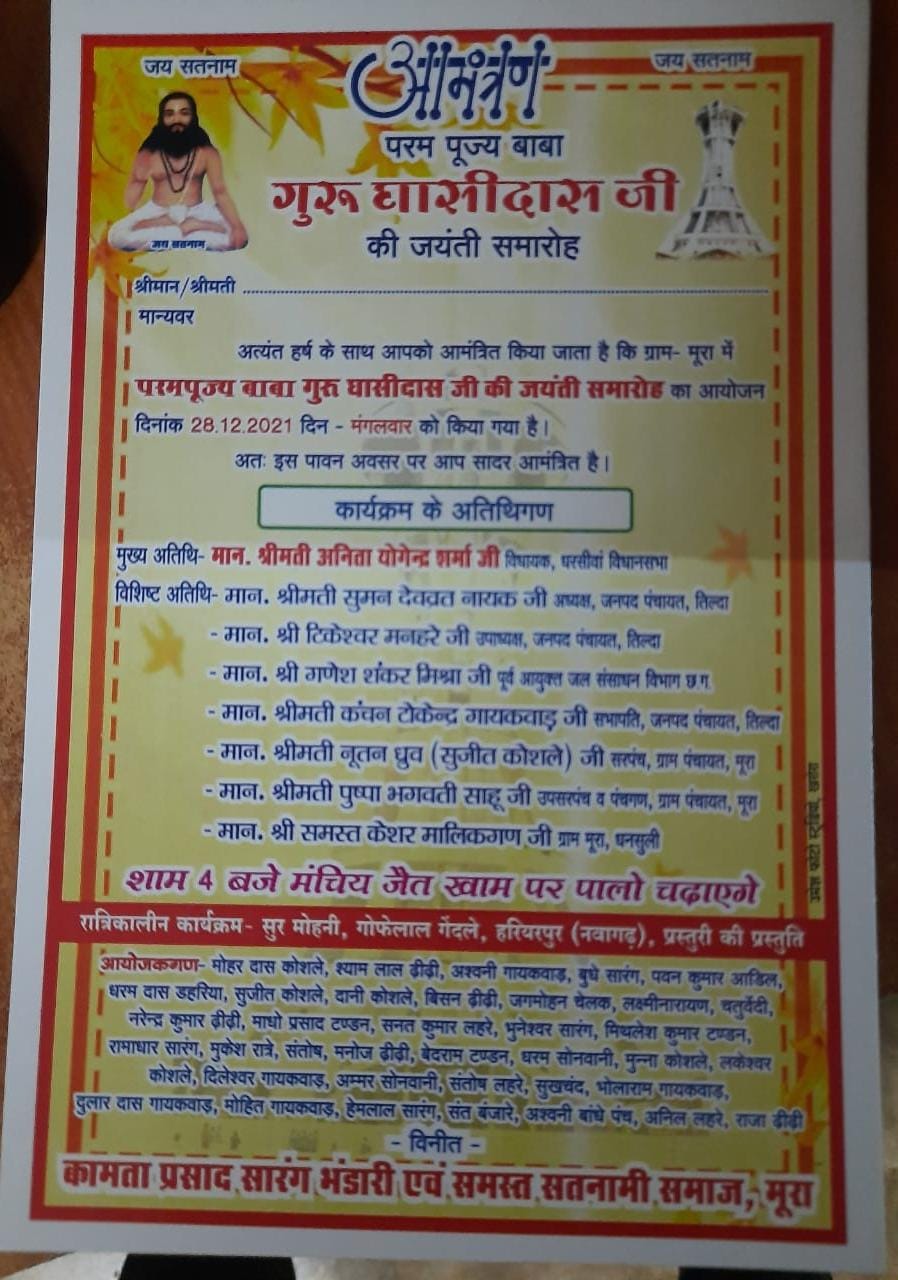 जय सतनाम
आमंत्रण
जय सतनाम
परम पूज्य बाबा
गुरू घासीदास जी
की जयंती समारोह
जय सतनाम
श्रीमान/श्रीमती ........................................
मान्यवर
अत्यंत हर्ष के साथ आपको आमंत्रित किया जाता है कि ग्राम- मूरा में
परमपूज्य बाबा गुरु घासीदास जी की जयंती समारोह का आयोजन
दिनांक 28.12.2021 दिन - मंगलवार को किया गया है।
अतः इस पावन अवसर पर आप सादर आमंत्रित है।
कार्यक्रम के अतिथिगण
मुख्य अतिथि- मान. श्रीमती अनिता योगेन्द्र शर्मा जी विधायक, धरसीवां विधानसभा
विशिष्ट अतिथि- मान. श्रीमती सुमन देवव्रत नायक जी अध्यक्ष, जनपद पंचायत, तिल्दा
- मान. श्री टिकेश्वर मनहरे जी उपाध्यक्ष, जनपद पंचायत, तिल्दा
- मान. श्री गणेश शंकर मिश्रा जी पूर्व आयुक्त जल संसाधन विभाग छ.ग.
- मान. श्रीमती कंचन टोकेन्द्र गायकवाड़ जी सभापति, जनपद पंचायत, तिल्दा
- मान. श्रीमती नूतन ध्रुव (सुजीत कोशले) जी सरपंच, ग्राम पंचायत, मूरा
- मान. श्रीमती पुष्पा भगवती साहू जी उपसरपंच व पंचगण, ग्राम पंचायत, मूरा
- मान. श्री समस्त केशर मालिकगण जी ग्राम मूरा, धनसुली
शाम 4 बजे मंचिय जैत खाम पर पालो चढ़ाएगे
रात्रिकालीन कार्यक्रम- सुर मोहनी, गोफेलाल गेंदले, हरियरपुर (नवागढ़), प्रस्तुरी की प्रस्तुति
आयोजकगण- मोहर दास कोशले, श्याम लाल ढ़ीढ़ी, अश्वनी गायकवाड़, बुधे सारंग, पवन कुमार आडिल,
धरम दास डहरिया, सुजीत कोशले, दानी कोशले, बिसन ढ़ीढ़ी, जगमोहन चेलक, लक्ष्मीनारायण, चतुर्वेदी,
नरेन्द्र कुमार ढ़ीढ़ी, माधो प्रसाद टण्डन, सनत कुमार लहरे, भुनेश्वर सारंग, मिथलेश कुमार टण्डन,
रामाधार सारंग, मुकेश रात्रे, संतोष, मनोज ढ़ीढ़ी, बेदराम टण्डन, धरम सोनवानी, मुन्ना कोशले, लकेश्वर
कोशले, दिलेश्वर गायकवाड़, अम्मर सोनवानी, संतोष लहरे, सुखचंद, भोलाराम गायकवाड़,
दुलार दास गायकवाड़, मोहित गायकवाड़, हेमलाल सारंग, संत बंजारे, अश्वनी बांधे पंच, अनिल लहरे, राजा ढ़ीढ़ी
- विनीत -
कामता प्रसाद सारंग भंडारी एवं समस्त सतनामी समाज, मूरा
उमेश फोटो स्टूडियो, खरोरा